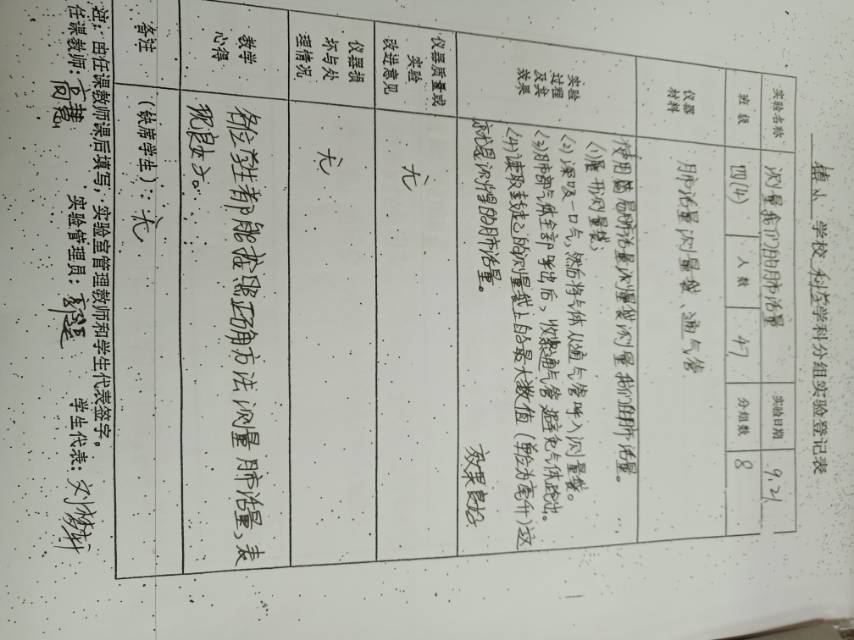 小 学校 科学 学科分组实验登记表
实验名称 测量我们的肺活量 实验日期 9.21
班级 四(4) 人数 47 分组数 8
仪器材料 肺活量测量袋、通气管
实验过程及其效果
使用简易肺活量测量袋测量我们的肺活量。
(1)展开测量袋;
(2)深吸一口气,然后将气体从通气管呼入测量袋。
(3)肺部气体全部呼出后,收紧通气管避免气体跑出。
(4)读取 测量袋上的最大数值(单位为毫升)这
就是测得的肺活量。
效果良好
仪器质量或实验改进意见 无
仪器损坏与处理情况 无
教学心得 各位学生都能按照正确方法测量肺活量、表
现良好。
备注 (缺席学生):无
注:由任课教师课后填写;实验室管理教师和学生代表签字。
任课教师: 实验管理员: 学生代表: